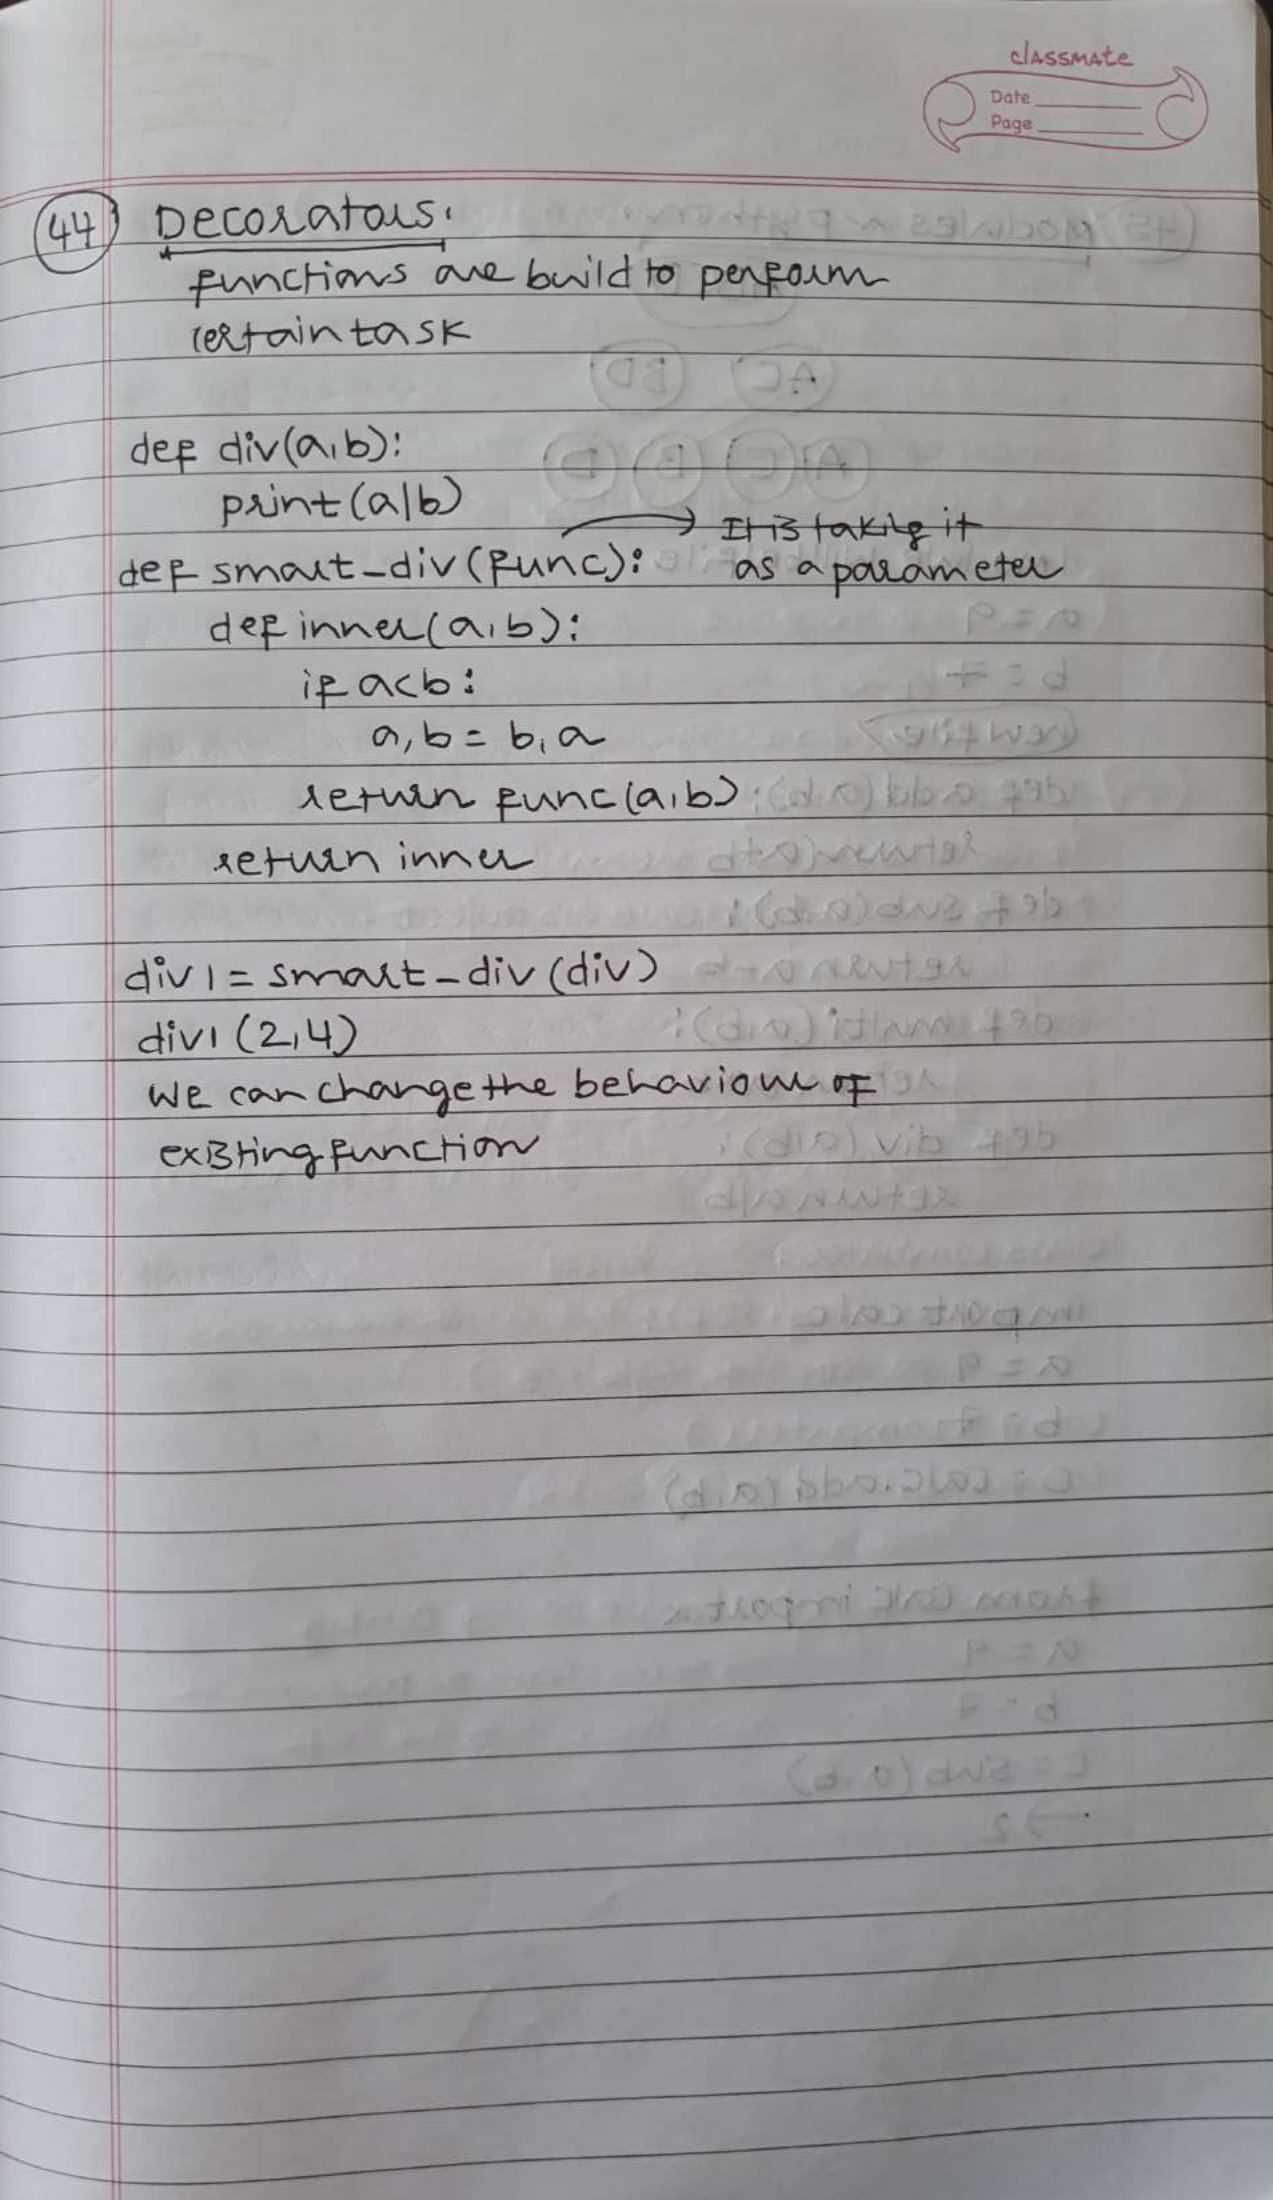 classmate
Date
Page
44 Decorators.
functions are build to perform
certain task
def div(a,b):
print(a/b)
It is taking it
def smart_div(func): as a parameter
def inner(a,b):
if a<b:
a,b = b,a
return func(a,b)
return inner
div1 = smart_div(div)
div1(2,4)
We can change the behaviour of
existing function